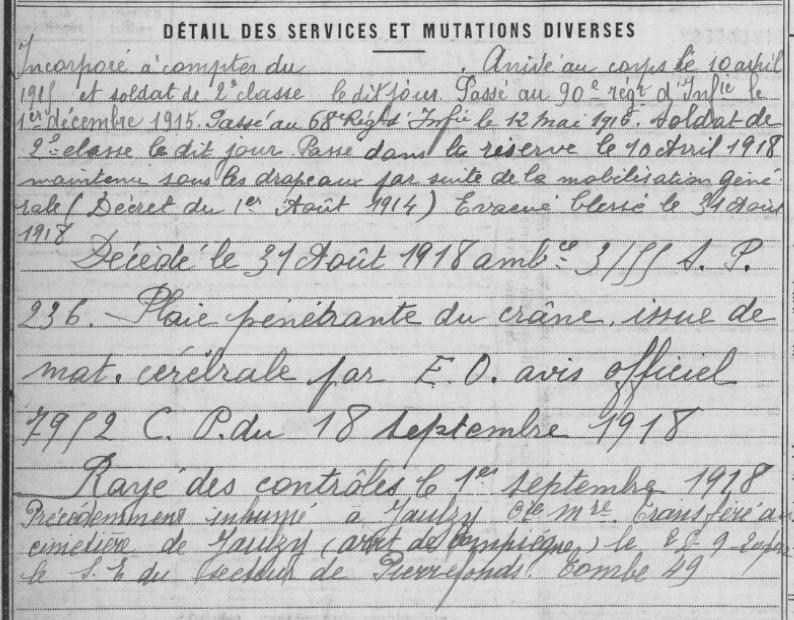 DÉTAIL DES SERVICES ET MUTATIONS DIVERSES
Incorporé à compter du . Arrivé au corps le 10 avril
1915 et soldat de 2e classe le dit jour. Passé au 90e régt d'Infie le
1er décembre 1915. Passé au 68e Régt d'Infie le 12 mai 1916. soldat de
2e classe le dit jour. Passé dans la réserve le 10 Avril 1918
maintenu sous les drapeaux par suite de la mobilisation géné
rale (Décret du 1er Août 1914) Evacué blessé le 31 Août
1918
Décédé le 31 Août 1918 ambce 3/55 S. P.
236. Plaie pénétrante du crâne, issue de
mat. cérébrale par E. O. avis officiel
7952 C. P. du 18 septembre 1918
Rayé des contrôles le 1er septembre 1918
Précédemment inhumé à Jaulzy cre mre. Transféré au
cimetière de Jaulzy (arrt de Compiègne) le 9 par
le S. E du secteur de Pierrefonds. Tombe 49